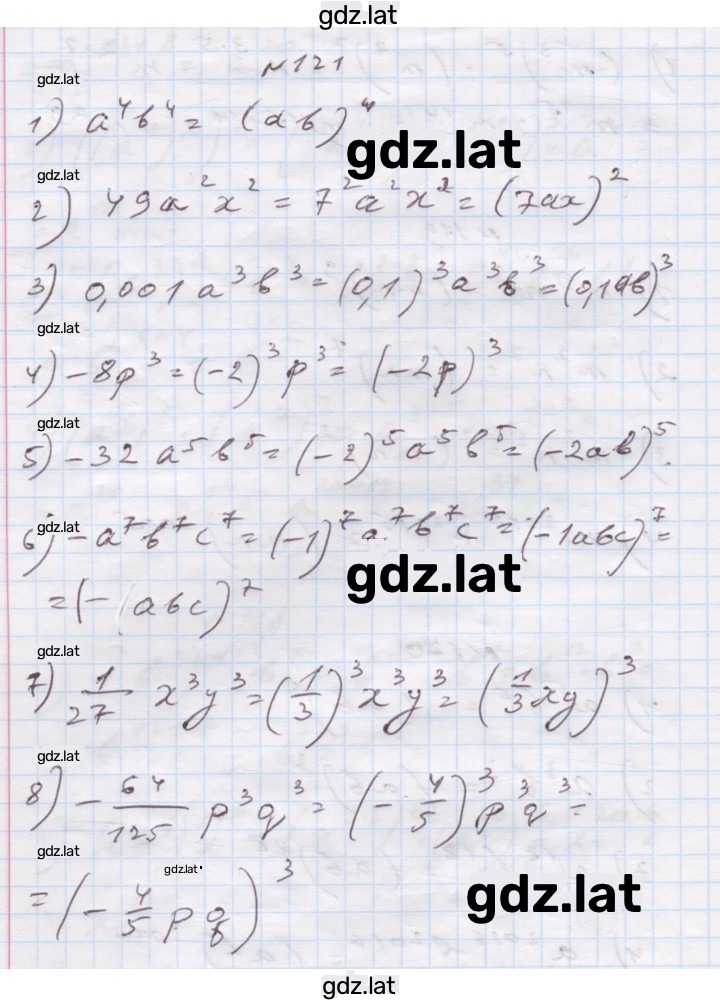 gdz.lat
№121
gdz.lat
1) a⁴b⁴ = (ab)⁴
gdz.lat
gdz.lat
2) 49a²x² = 7²a²x² = (7ax)²
gdz.lat
3) 0,001a³b³ = (0,1)³a³b³ = (0,1ab)³
gdz.lat
4) -8p³ = (-2)³p³ = (-2p)³
gdz.lat
5) -32a⁵b⁵ = (-2)⁵a⁵b⁵ = (-2ab)⁵.
gdz.lat
6) -a⁷b⁷c⁷ = (-1)⁷a⁷b⁷c⁷ = (-1abc)⁷ =
gdz.lat
= (-abc)⁷
gdz.lat
7) 1/27 x³y³ = (1/3)³x³y³ = (1/3xy)³
gdz.lat
8) -64/125 p³q³ = (-4/5)³p³q³ =
gdz.lat
gdz.lat
= (-4/5pq)³
gdz.lat
gdz.lat